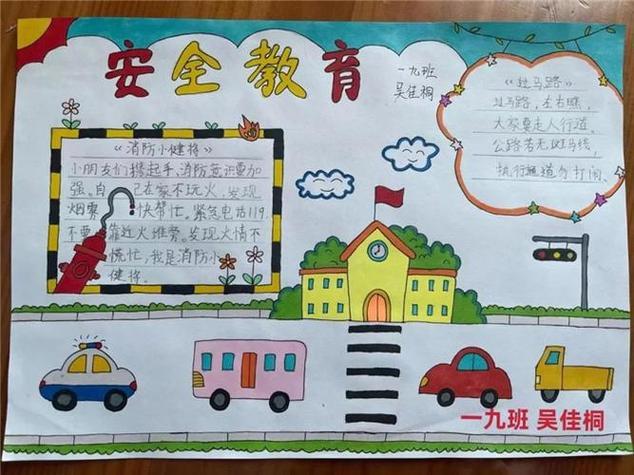 安全教育
一九班
吴佳桐
《消防小健将》
小朋友们携起手,消防意识要加
强。自己在家不玩火,发现
烟雾快帮忙。紧急电话119,
不要靠近火堆旁。发现火情不
慌忙,我是消防小
健将。
《过马路》
过马路,左右瞧,
大家要走人行道。
公路若无斑马线,
执行通道勿打闹。
一九班 吴佳桐